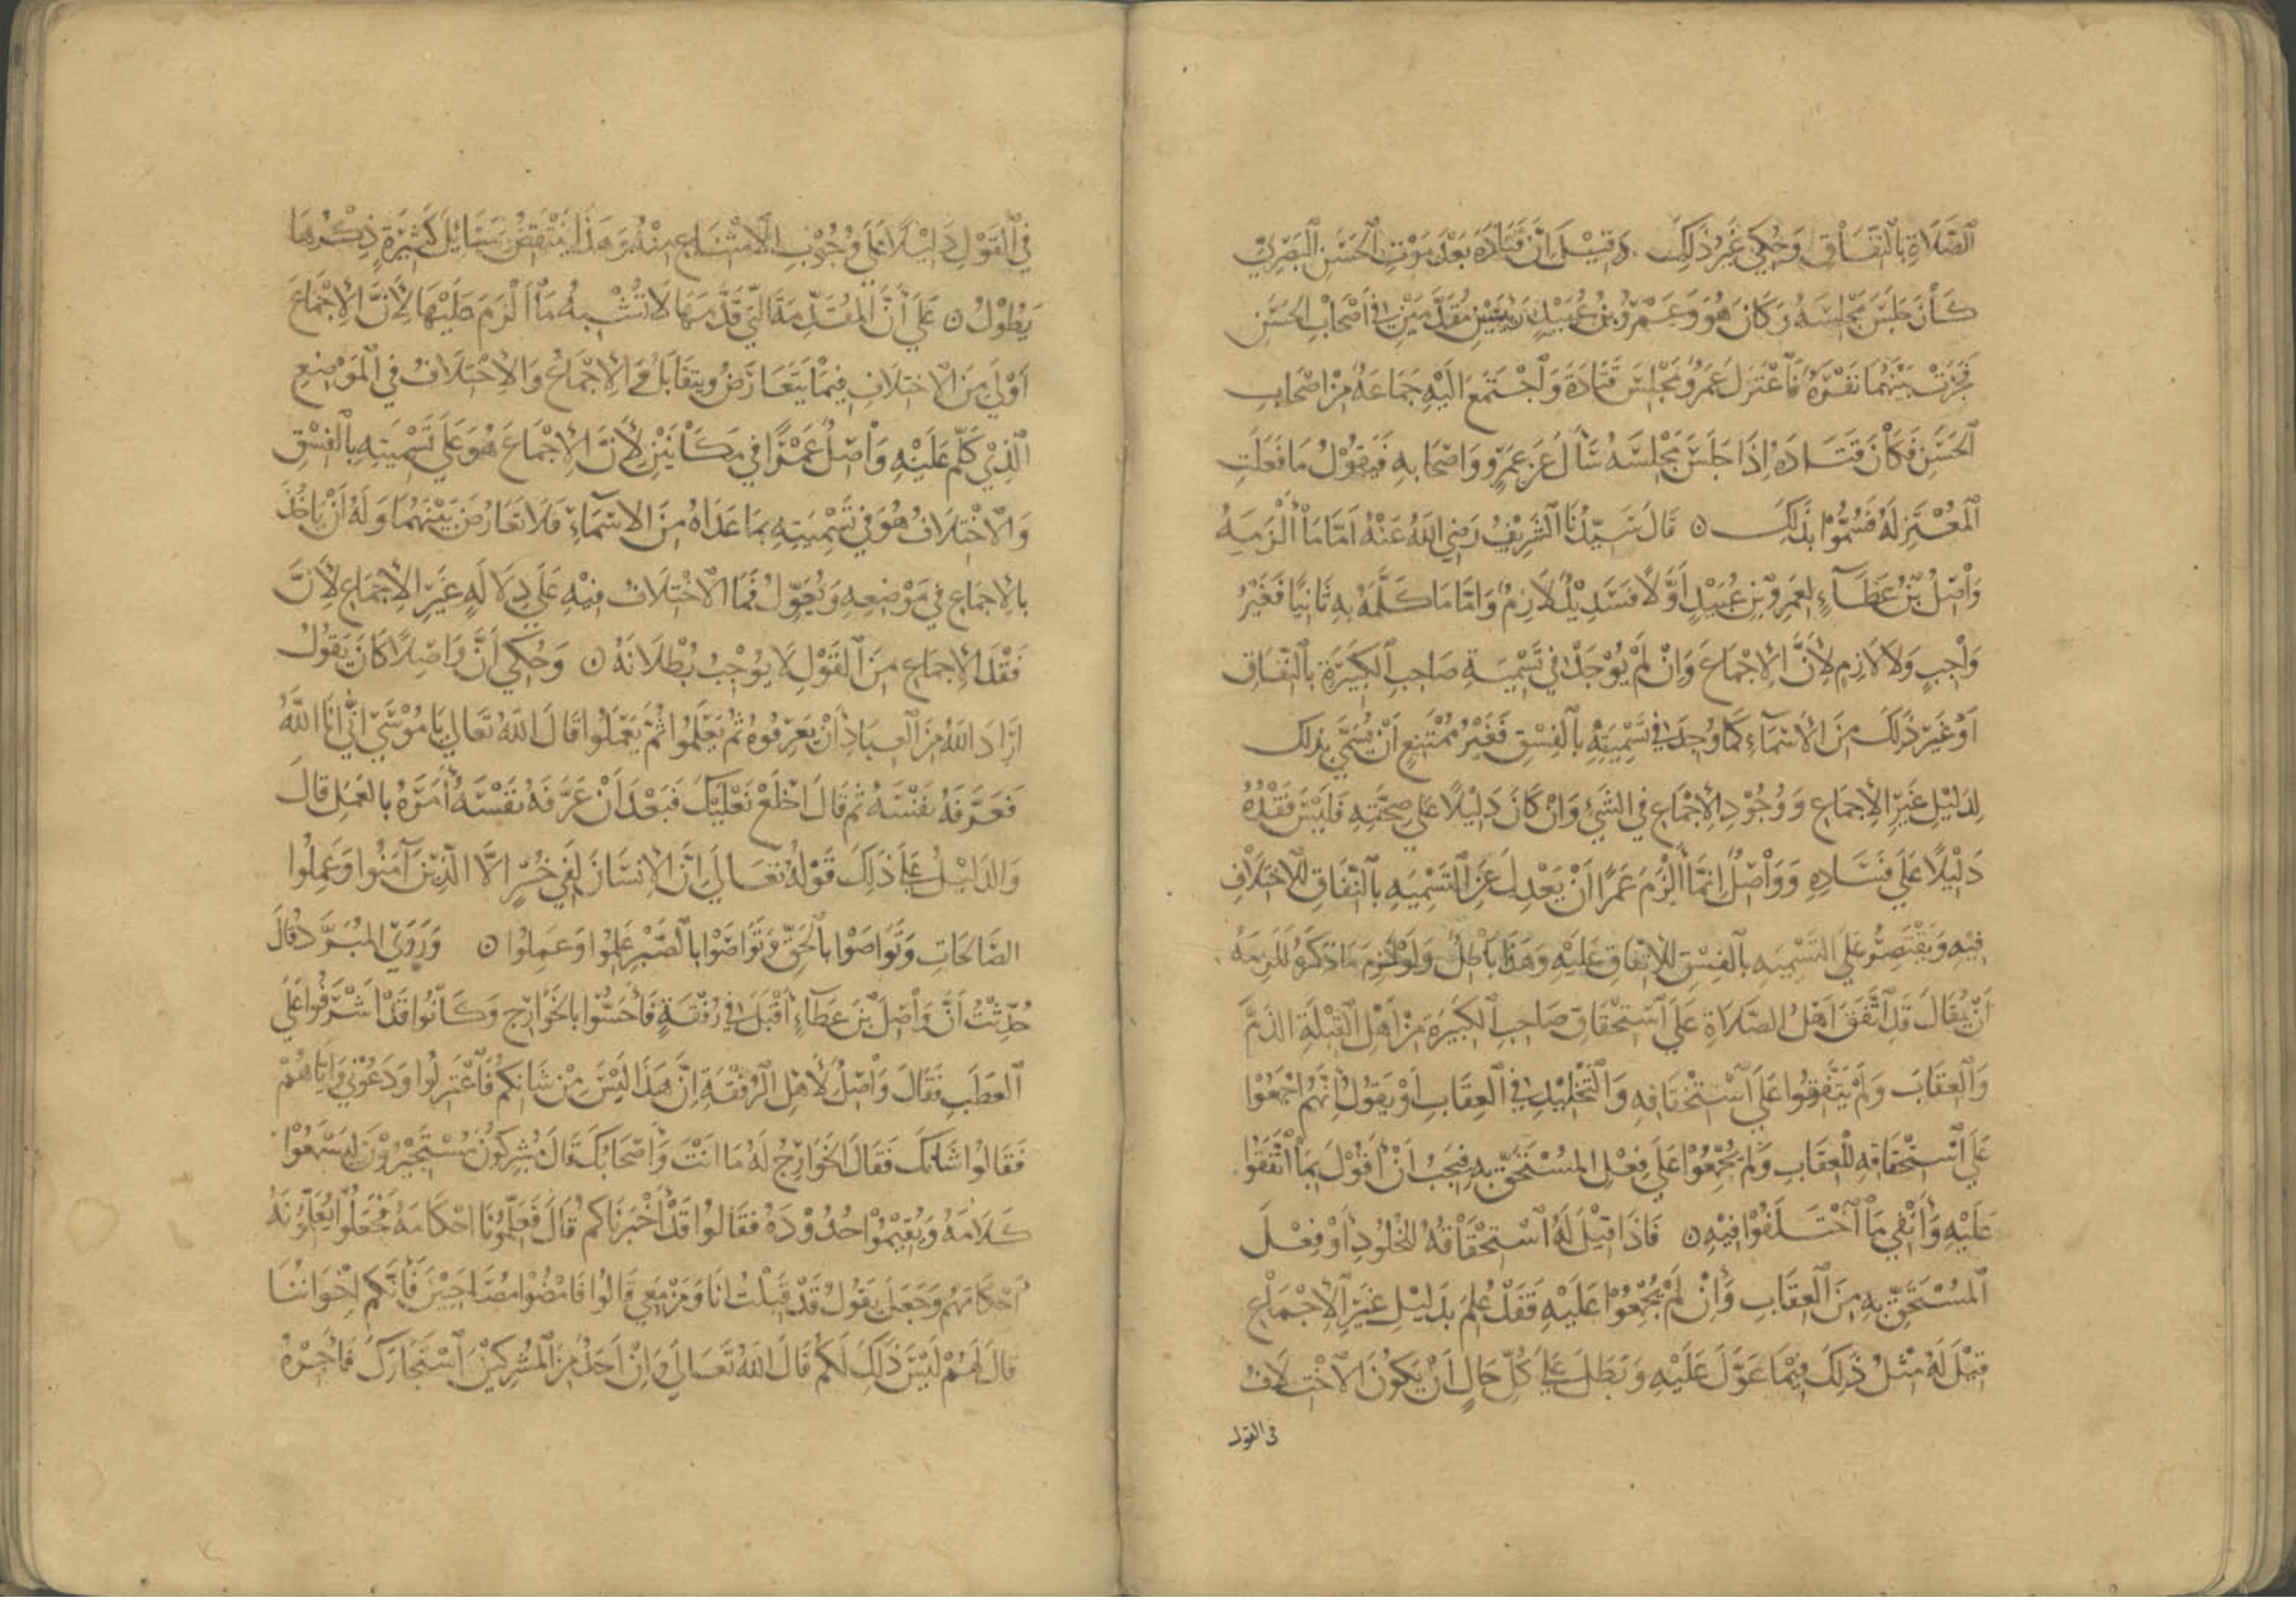 الصَّلَاةِ بِالنِّفَاقِ وَحُكِيَ غَيْرُ ذَلِكَ . وَقِيلَ اِنَّ قَتَادَةَ بَعْدَ مَوْتِ الْحَسَنِ الْبَصْرِيِّ
كَانَ جَلَسَ مَجْلِسَهُ وَكَانَ هُوَ وَعَمْرُو بْنُ عُبَيْدٍ رَئِيسَيْنِ مُقَدَّمَيْنِ فِي أَصْحَابِ الحَسَنِ
فَجَرَتْ بَيْنَهُمَا نَفْرَةٌ فَاعْتَزَلَ عَمْرٌو مَجْلِسَ قَتَادَةَ وَاجْتَمَعَ اِلَيْهِ جَمَاعَةٌ مِنْ اصْحَابِ
الْحَسَنِ فَكَانَ قَتَادَةُ اِذَا جَلَسَ مَجْلِسَهُ سَأَلَ عَنْ عَمْرٍو وَاصْحَابِهِ فَيَقُولُ مَا فَعَلَتِ
الْمُعْتَزِلَةُ فَسُمُّوا بِذَلِكَ ۞ قَالَ سَيِّدُنَا الشَّرِيفُ رَضِيَ اللّهُ عَنْهُ اَمَّا مَا أَلْزَمَهُ
وَاصِلُ بْنُ عَطَآءٍ لِعَمْرِو بْنِ عُبَيْدٍ أَوَّلًا فَسَدِيدٌ لَازِمٌ وَامَّا مَا كَلَّمَهُ بِهِ ثَانِيًا فَغَيْرُ
وَاجِبٍ وَلَا لَازِمٍ لِأَنَّ الإِجْمَاعَ وَاِنْ لَمْ يُوجَدْ فِي تَسْمِيَةِ صَاحِبِ الكَبِيرَةِ بِالنِّفَاقِ
اَوْ غَيْرِ ذَلِكَ مِنَ الأَسْمَآءِ كَمَا وُجِدَ فِي تَسْمِيَتِهِ بِالفِسْقِ فَغَيْرُ مُمْتَنِعٍ أَنْ يُسَمَّى بِذَلِكَ
لِدَلِيلٍ غَيْرِ الإِجْمَاعِ وَوُجُودِ الإِجْمَاعِ فِي الشَّيْءِ وَاِنْ كَانَ دَلِيلًا عَلَى صِحَّتِهِ فَلَيْسَ فَقْدُهُ
دَلِيلًا عَلَى فَسَادِهِ وَوَاصِلٌ اِنَّمَا أَلْزَمَ عَمْرًا اَنْ يَعْدِلَ عَنِ التَّسْمِيَةِ بِالنِّفَاقِ لِلاخْتِلَافِ
فِيهِ وَيَقْتَصِرَ عَلَى التَّسْمِيَةِ بِالفِسْقِ لِلاتِّفَاقِ عَلَيْهِ وَهَذَا بَاطِلٌ وَلَوْ لَزِمَ مَا ذَكَرَهُ لَلَزِمَهُ
أَنْ يُقَالَ قَدِ اتَّفَقَ اَهْلُ الصَّلَاةِ عَلَى اسْتِحْقَاقِ صَاحِبِ الكَبِيرَةِ مِنْ أَهْلِ القِبْلَةِ الذَمَّ
وَالعِقَابَ وَلَمْ يَتَّفِقُوا عَلَى اسْتِحْقَاقِهِ وَالتَّخْلِيدِ فِي العِقَابِ أَوْ يَقُولُ اِنَّهُمُ اجْمَعُوا
عَلَى اسْتِحْقَاقِهِ لِلْعِقَابِ وَلَمْ يُجْمِعُوا عَلَى فِعْلِ المُسْتَحَقِّ بِهِ فَيَجِبُ اَنْ أَقُولَ بِمَا اتَّفَقُوا
عَلَيْهِ وَأَنْفِيَ مَا اخْتَلَفُوا فِيهِ ۞ فَاذَا قِيلَ لَهُ اسْتِحْقَاقُهُ لِلْخُلُودِ أَوْ فِعْلَ
الْمُسْتَحَقِّ بِهِ مِنَ العِقَابِ وَاِنْ لَمْ يُجْمِعُوا عَلَيْهِ فَقَدْ عُلِمَ بِدَلِيلٍ غَيْرِ الإِجْمَاعِ
قِيلَ لَهُ مِثْلُ ذَلِكَ فِيمَا عَوَّلَ عَلَيْهِ وَبَطَلَ عَلَى كُلِّ حَالٍ اَنْ يَكُونَ الاخْتِلَافُ
فى القول
فِي القَوْلِ دَلِيلًا عَلَى وُجُوبِ الامْتِنَاعِ مِنْهُ وَهَذَا يَنْتَقِضُ بِمَسَائِلَ كَثِيرَةٍ ذِكْرُهَا
يَطُولُ ۞ عَلَى أَنَّ المُقَدِّمَةَ الَّتِي قَدَّمَهَا لَا تُشْبِهُ مَا أَلْزَمَ عَلَيْهَا لِأَنَّ الإِجْمَاعَ
أَوْلَى مِنَ الاخْتِلَافِ فِيمَا يَتَعَارَضُ وَيَتَقَابَلُ فِيهِ الإِجْمَاعُ وَالاخْتِلَافُ فِي المَوْضِعِ
الَّذِي كَلَّمَ عَلَيْهِ وَاصِلٌ عَمْرًا فِي مَكَانَيْنِ لِأَنَّ الإِجْمَاعَ هُوَ عَلَى تَسْمِيَتِهِ بِالفِسْقِ
وَالاخْتِلَافُ هُوَ فِي تَسْمِيَتِهِ بِمَا عَدَاهُ مِنَ الاسْمَاءِ فَلَا تَعَارُضَ بَيْنَهُمَا وَلَهُ اَنْ يَاخُذَ
بِالإِجْمَاعِ فِي مَوْضِعِهِ وَيُعَوِّلُ فِيمَا الاخْتِلَافُ فِيهِ عَلَى دِلَالَةٍ غَيْرِ الإِجْمَاعِ لِأَنَّ
فَقْدَ الإِجْمَاعِ مِنَ القَوْلِ لَا يُوْجِبُ بُطْلَانَهُ ۞ وَحُكِيَ أَنَّ وَاصِلًا كَانَ يَقُولُ
اَرَادَ اللّهُ مِنَ العِبَادِ أَنْ يَعْرِفُوهُ ثُمَّ يَعْلَمُوا ثُمَّ يَعْمَلُوا قَالَ اللّهُ تَعَالَى يَا مُوسَى اِنِّي اَنَا اللّهُ
فَعَرَّفَهُ نَفْسَهُ ثُمَّ قَالَ اخْلَعْ نَعْلَيْكَ فَبَعْدَ اَنْ عَرَّفَهُ نَفْسَهُ أَمَرَهُ بِالعَمَلِ قَالَ
وَالدَلِيلُ عَلَى ذَلِكَ قَوْلُهُ تَعَالَى اِنَّ الإِنسَانَ لَفِي خُسْرٍ اِلَّا الَّذِينَ آمَنُوا وَعَمِلُوا
الصَالِحَاتِ وَتَوَاصَوْا بِالْحَقِّ وَتَوَاصَوْا بِالصَّبْرِ عَلِمُوا وَعَمِلُوا ۞ وَرَوَى المُبَرَّدُ قَالَ
حُدِّثْتُ أَنَّ وَاصِلَ بْنَ عَطَآءٍ أَقْبَلَ فِي رُفْقَةٍ فَأَحَسُّوا بِالخَوَارِجِ وَكَانُوا قَدْ اَشْرَفُوا عَلَى
العَطَبِ فَقَالَ وَاصِلٌ لِأَهْلِ الرُفْقَةِ اِنَّ هَذَا لَيْسَ مِنْ شَانِكُمْ فَاعْتَزِلُوا وَدَعُونِي وَاِيَّاهُمْ
فَقَالُوا شَانَكَ فَقَالَ الخَوَارِجُ لَهُ مَا اَنْتَ وَأَصْحَابُكَ قَالَ مُشْرِكُونَ مُسْتَجِيرُونَ لِيَسْمَعُوا
كَلَامَهُ وَيُقِيمُوا حُدُودَهُ فَقَالُوا قَدْ أَجَرْنَاكُمْ قَالَ فَعَلِّمُونَا احْكَامَهُ فَجَعَلُوا يُعَلِّمُونَهُ
أَحْكَامَهُمْ وَجَعَلَ يَقُولُ قَدْ قَبِلْتُ انَا وَمَنْ مَعِي قَالُوا فَامْضُوا مُصَاحَبِينَ فَاِنَّكُمْ اِخْوَانُنَا
قَالَ لَهُمْ لَيْسَ ذَلِكَ لَكُمْ قَالَ اللّهُ تَعَالَى وَاِنْ اَحَدٌ مِنَ الْمُشْرِكِينَ اسْتَجَارَكَ فَأَجِرْهُ